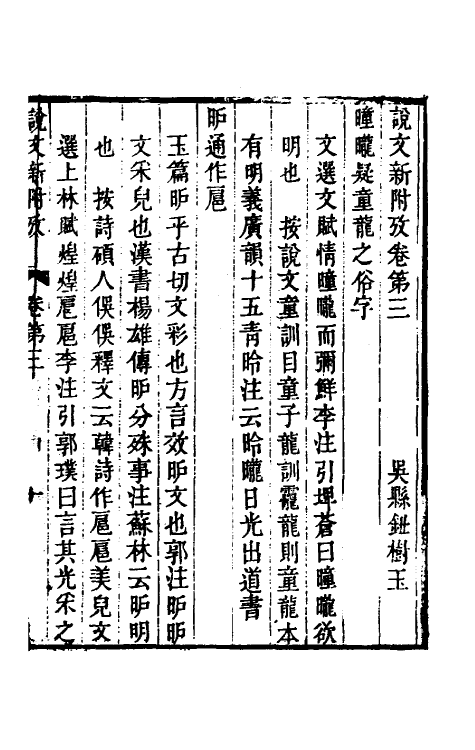 說文新附攷卷第三　　　吳縣鈕樹玉
曈曨疑童龍之俗字
文選文賦情曈曨而彌鮮李注引埤蒼曰曈曨欲
明也　按說文童訓目童子龍訓靇龍則童龍本
有明義廣韻十五青昤注云昤曨日光出道書
昈通作扈
玉篇昈乎古切文彩也方言效昈文也郭注昈昈
文采皃也漢書楊雄傳昈分殊事注蘇林云昈明
也　按詩碩人俁俁釋文云韓詩作扈扈美皃文
選上林賦煌煌扈扈李注引郭璞曰言其光采之
說文新附攷　卷第三　一